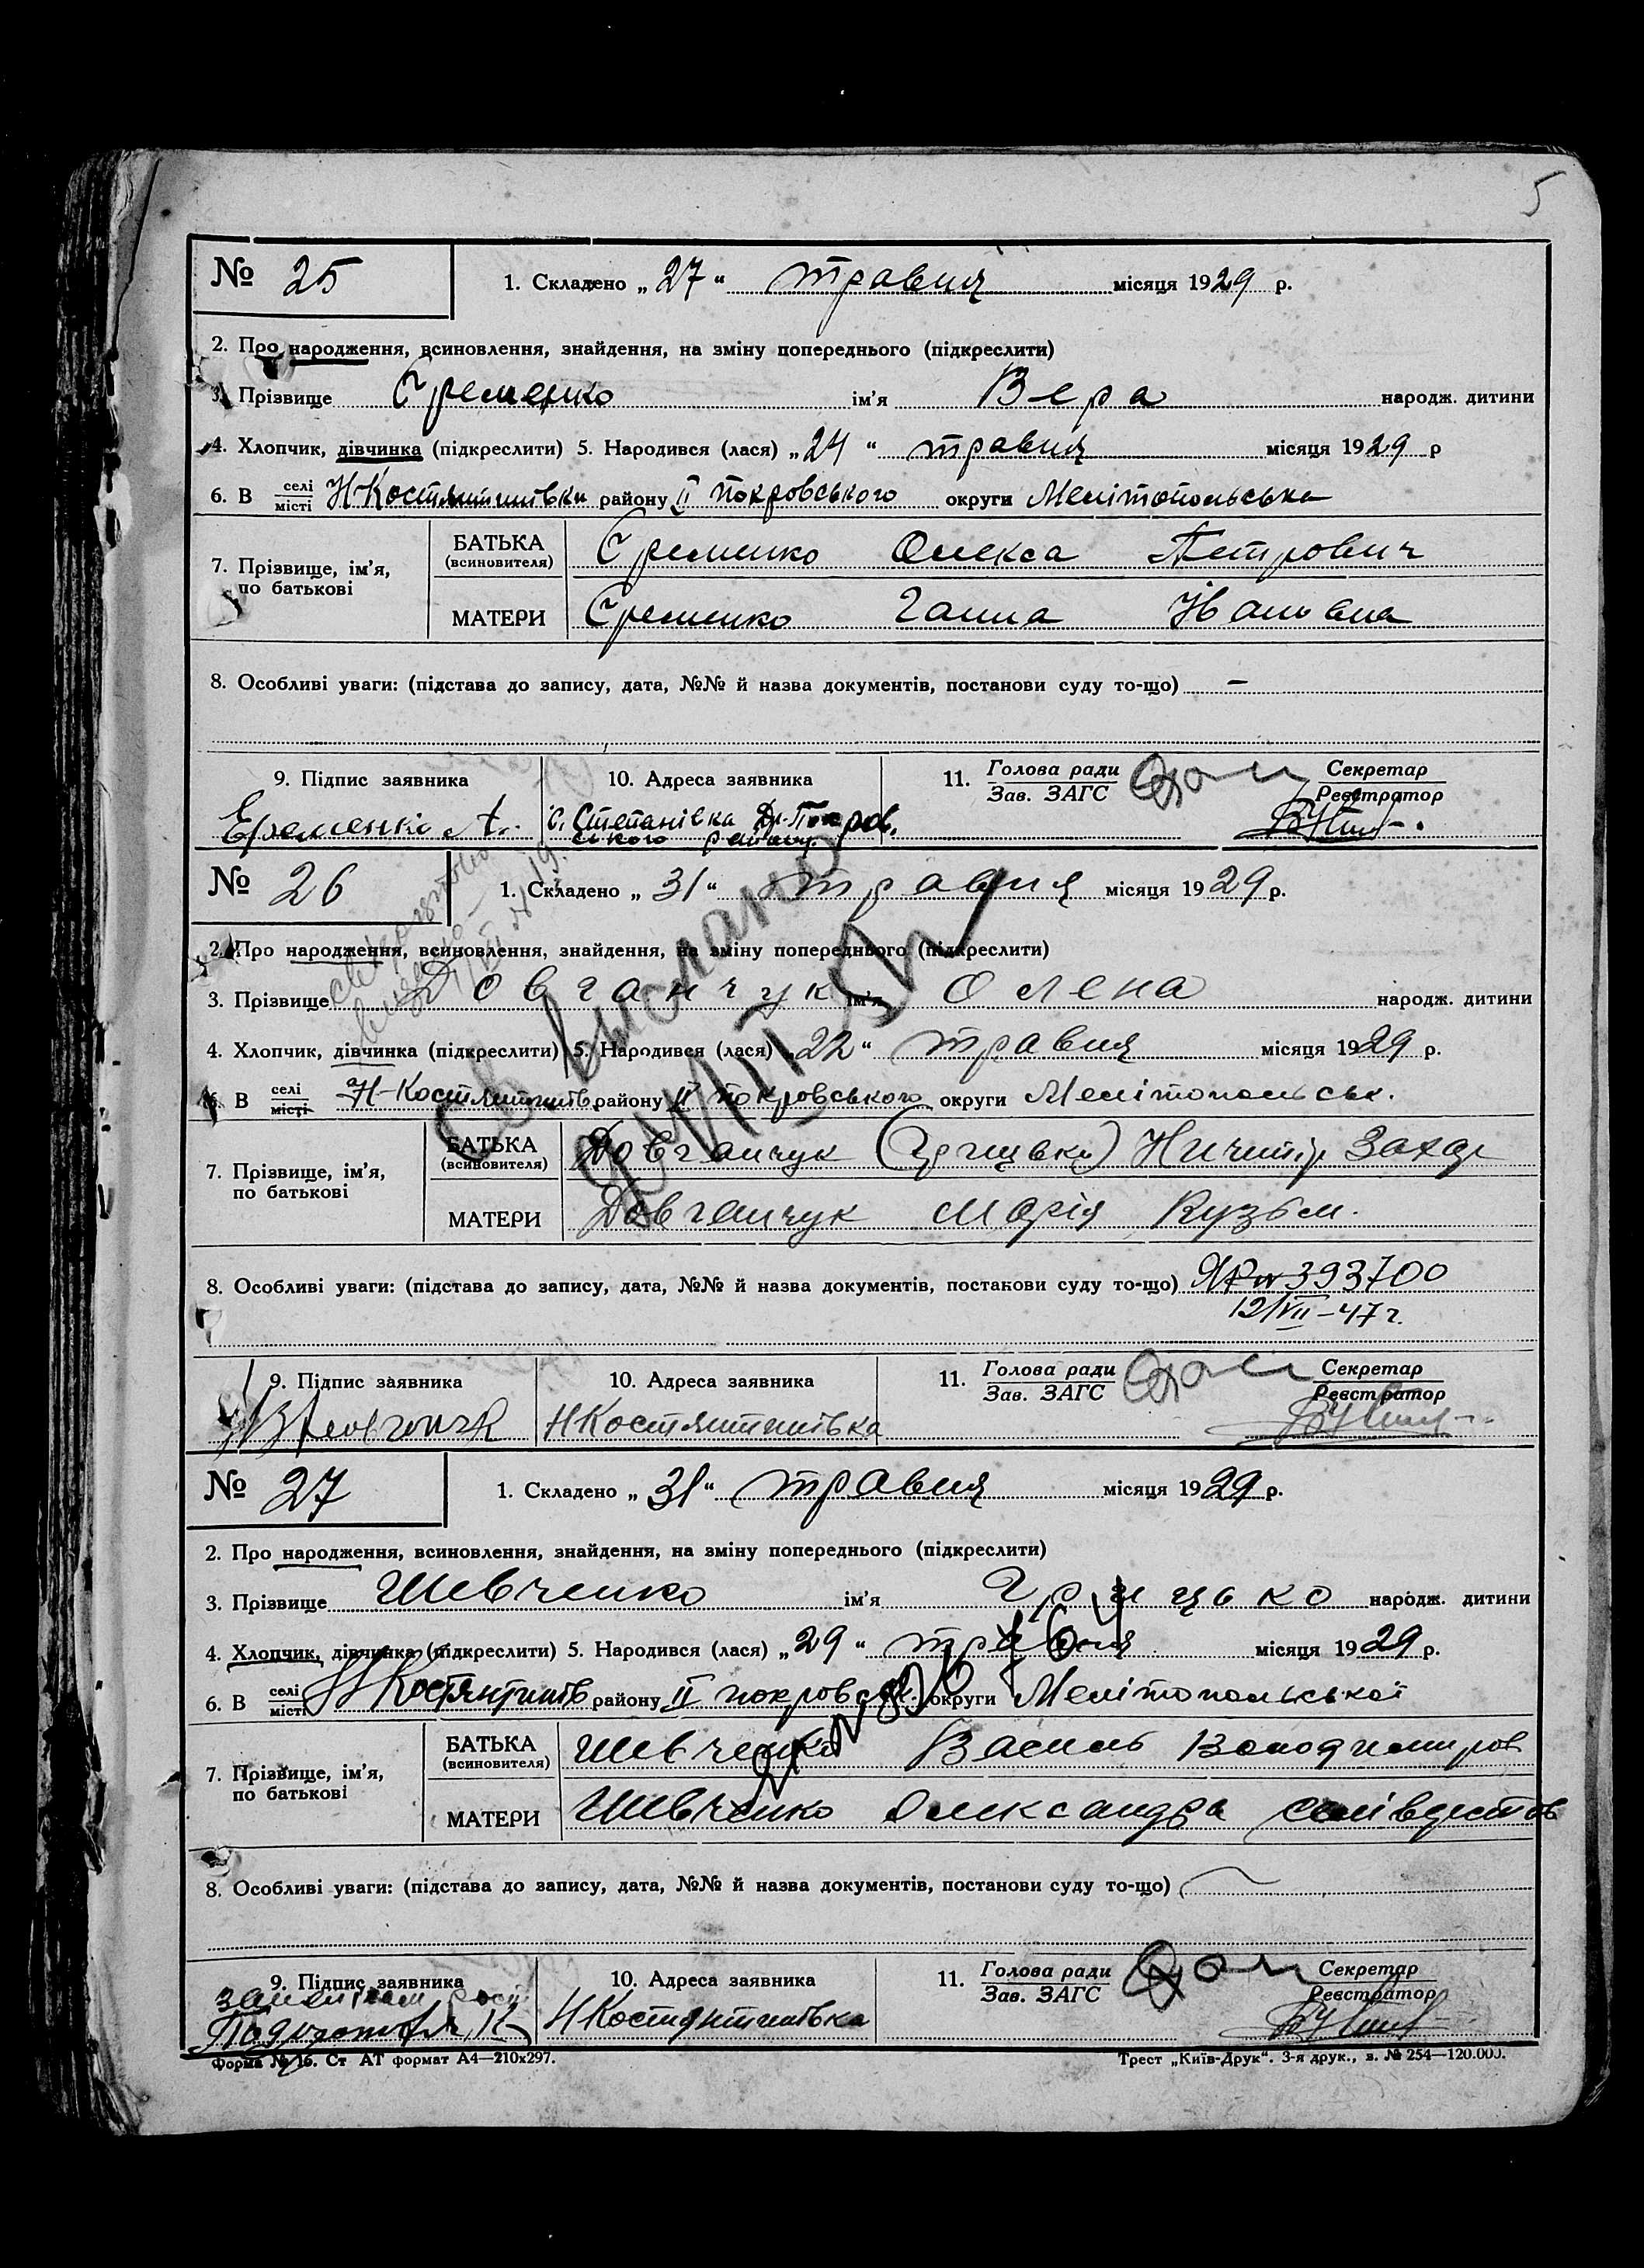 5
№ 25
1. Складено „ 27 “ травня місяця 1929 р.
2. Про народження, всиновлення, знайдення, на зміну попереднього (підкреслити)
3. Прізвище Єременко ім'я Вера народж. дитини
4. Хлопчик, дівчинка (підкреслити) 5. Народився (лася) „ 24 “ травня місяця 1929 р
6. В селі місті Н-Костянтинівки району II Покровського округи Мелітопольська
7. Прізвище, ім'я, по батькові
БАТЬКА (всиновителя) Єременко Олекса Петрович
МАТЕРИ Єременко Ганна Івановна
8. Особливі уваги: (підстава до запису, дата, №№ й назва документів, постанови суду то-що) –
9. Підпис заявника 10. Адреса заявника 11. Голова ради Зав. ЗАГС Секретар Реєстратор
Еременко А. с. Степанівка Др-Покров.
ського району
№ 26
1. Складено „ 31 “ травня місяця 1929 р.
2. Про народження, всиновлення, знайдення, на зміну попереднього (підкреслити)
3. Прізвище Довганчук ім'я Олена народж. дитини
4. Хлопчик, дівчинка (підкреслити) 5. Народився (лася) „ 22 “ травня місяця 1929 р.
6. В селі місті Н-Костянтинів. району II Покровського округи Мелітопольськ.
св. выслано
7. Прізвище, ім'я, по батькові
БАТЬКА (всиновителя) Довганчук Ничипір Захар
МАТЕРИ Довганчук Марія Кузьм.
8. Особливі уваги: (підстава до запису, дата, №№ й назва документів, постанови суду то-що) ЯР № 393700
12/VII-47 г.
9. Підпис заявника 10. Адреса заявника 11. Голова ради Зав. ЗАГС Секретар Реєстратор
НКостянтинівка
№ 27
1. Складено „ 31 “ травня місяця 1929 р.
2. Про народження, всиновлення, знайдення, на зміну попереднього (підкреслити)
3. Прізвище Шевченко ім'я Грицько народж. дитини
4. Хлопчик, дівчинка (підкреслити) 5. Народився (лася) „ 29 “ травня місяця 1929 р.
6. В селі місті Н Костянтинів району II Покровськ. округи Мелітопольської
7. Прізвище, ім'я, по батькові
БАТЬКА (всиновителя) Шевченко Василь Володимиров
МАТЕРИ Шевченко Олександра Селівестов
8. Особливі уваги: (підстава до запису, дата, №№ й назва документів, постанови суду то-що)
9. Підпис заявника 10. Адреса заявника 11. Голова ради Зав. ЗАГС Секретар Реєстратор
Н Костянтинівка
Форма № 16. Ст АТ формат А4—210х297.
Трест „Київ-Друк“. 3-я друк., з. № 254—120.000.